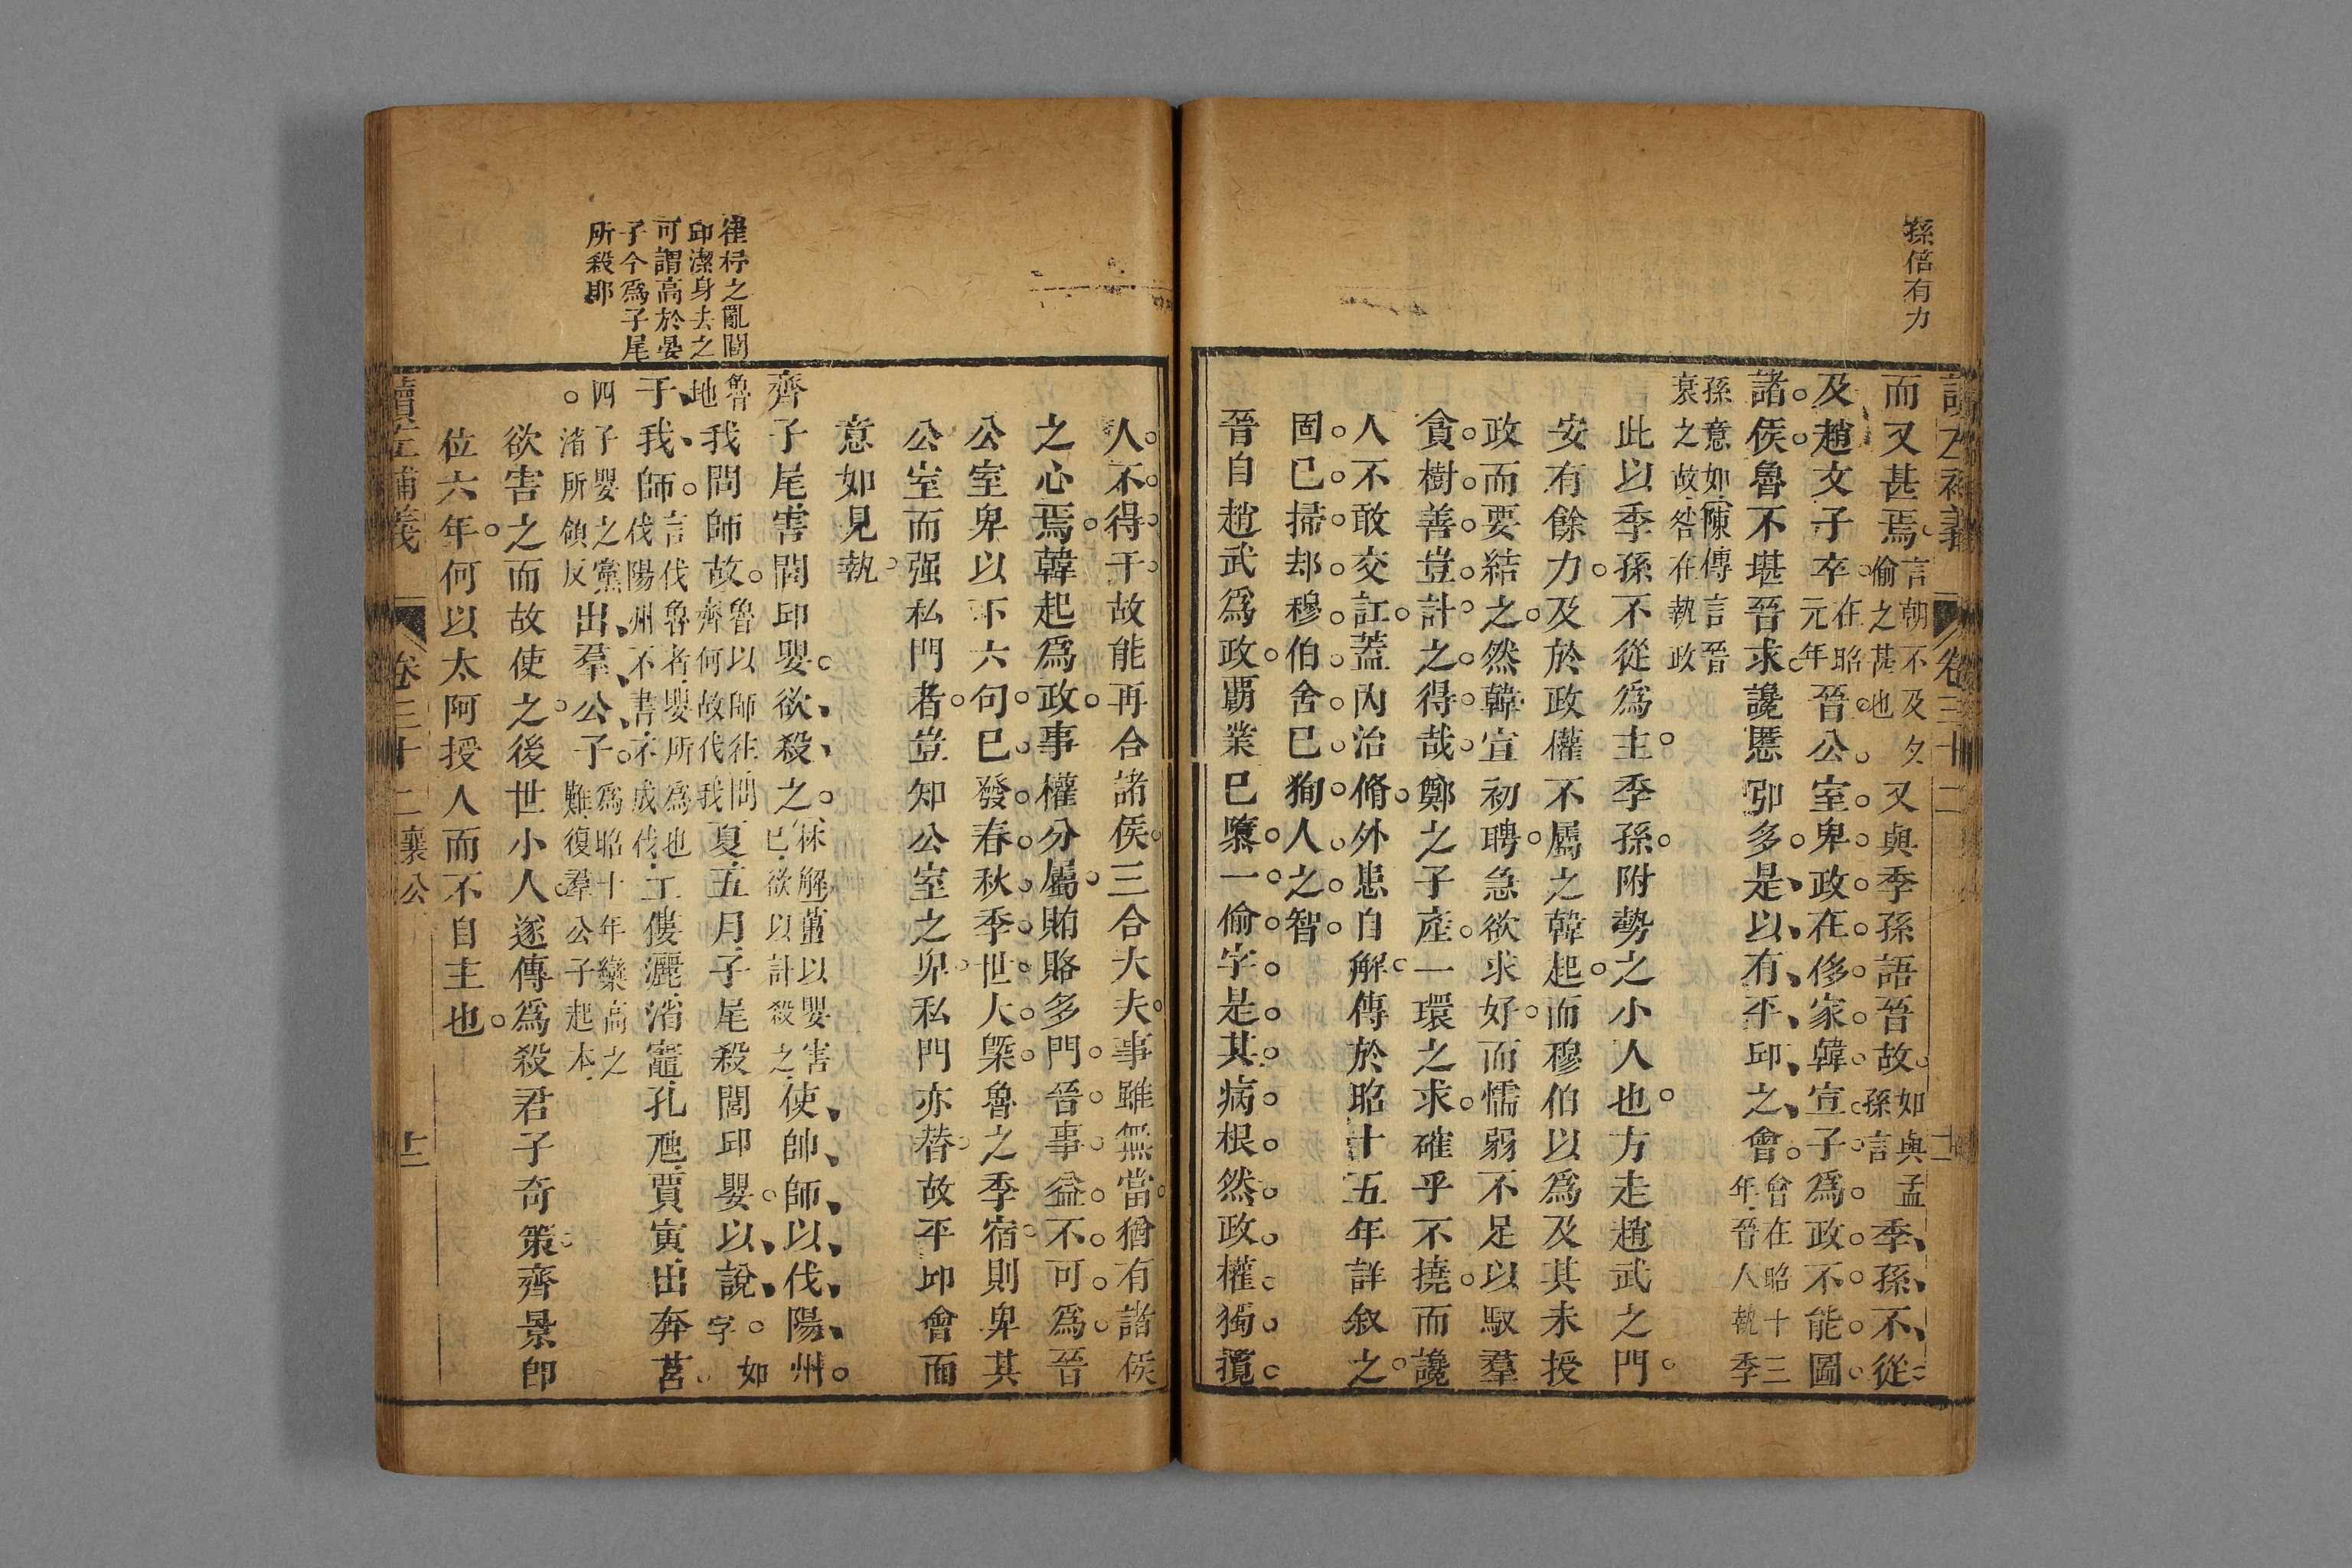 孫倍有力
讀左補義　卷三十二　十二
而又甚焉言朝不及夕偷之甚也又與季孫語晉故如與孟孫言季孫不從
及趙文子卒在昭元年晉公室卑政在侈家韓宣子爲政不能圖
諸侯魯不堪晉求讒慝弘多是以有平邱之會會在昭十三年晉人執季
孫意如陳傳言晉衰之故咎在執政
此以季孫不從爲主季孫附勢之小人也方走趙武之門
安有餘力及於政權不屬之韓起而穆伯以爲及其未授
政而要結之然韓宣初聘急欲求好而懦弱不足以馭羣
貪樹善豈計之得哉鄭之子產一環之求確乎不撓而讒
人不敢交訌蓋內治脩外患自解傳於昭十五年詳叙之
固已掃却穆伯舍已狥人之智
晉自趙武爲政覇業已隳一偷字是其病根然政權獨攬
人不得干故能再合諸侯三合大夫事雖無當猶有諸侯
之心焉韓起爲政事權分屬賄賂多門晉事益不可爲晉
公室卑以下六句已發春秋季世大槩魯之季宿則卑其
公室而强私門者豈知公室之卑私門亦替故平邱會而
意如見執
崔杼之亂閭
邱潔身去之
可謂高於晏
子今爲子尾
所殺耶
齊子尾害閭邱嬰欲殺之寐解蕫以嬰害已欲以計殺之使帥師以伐陽州
魯地我問師故魯以師往問齊何故伐我夏五月子尾殺閭邱嬰以說如字
于我師言伐魯者嬰所爲也伐陽州不書不成伐工僂灑渻竈孔虺賈寅出奔莒
四子嬰之黨渻所領反出羣公子爲昭十年欒高之難復羣公子起本
欲害之而故使之後世小人遂傳爲殺君子奇策齊景卽
位六年何以太阿授人而不自主也
讀左補義　卷三十二　襄公　十二